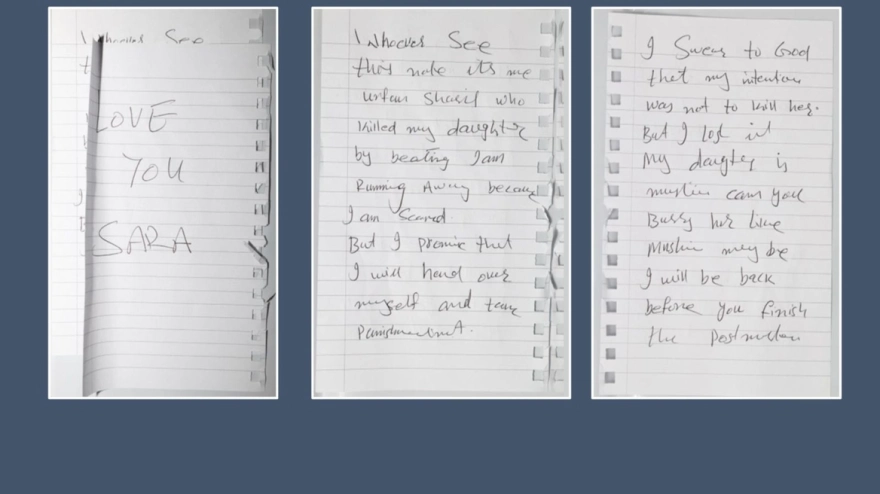 Whoever See
LOVE
YOU
SARA
Whoever See
this note its me
urfan Sharif who
killed my daughter
by beating I am
Running Away because
I am Scared.
But I promise that
I will hand over
myself and take
Punishment.
I Swear to God
that my intention
was not to kill her.
But I lost it
My daughter is
muslim can you
Burry her like
Muslim may be
I will be back
before you finish
the Postmortem